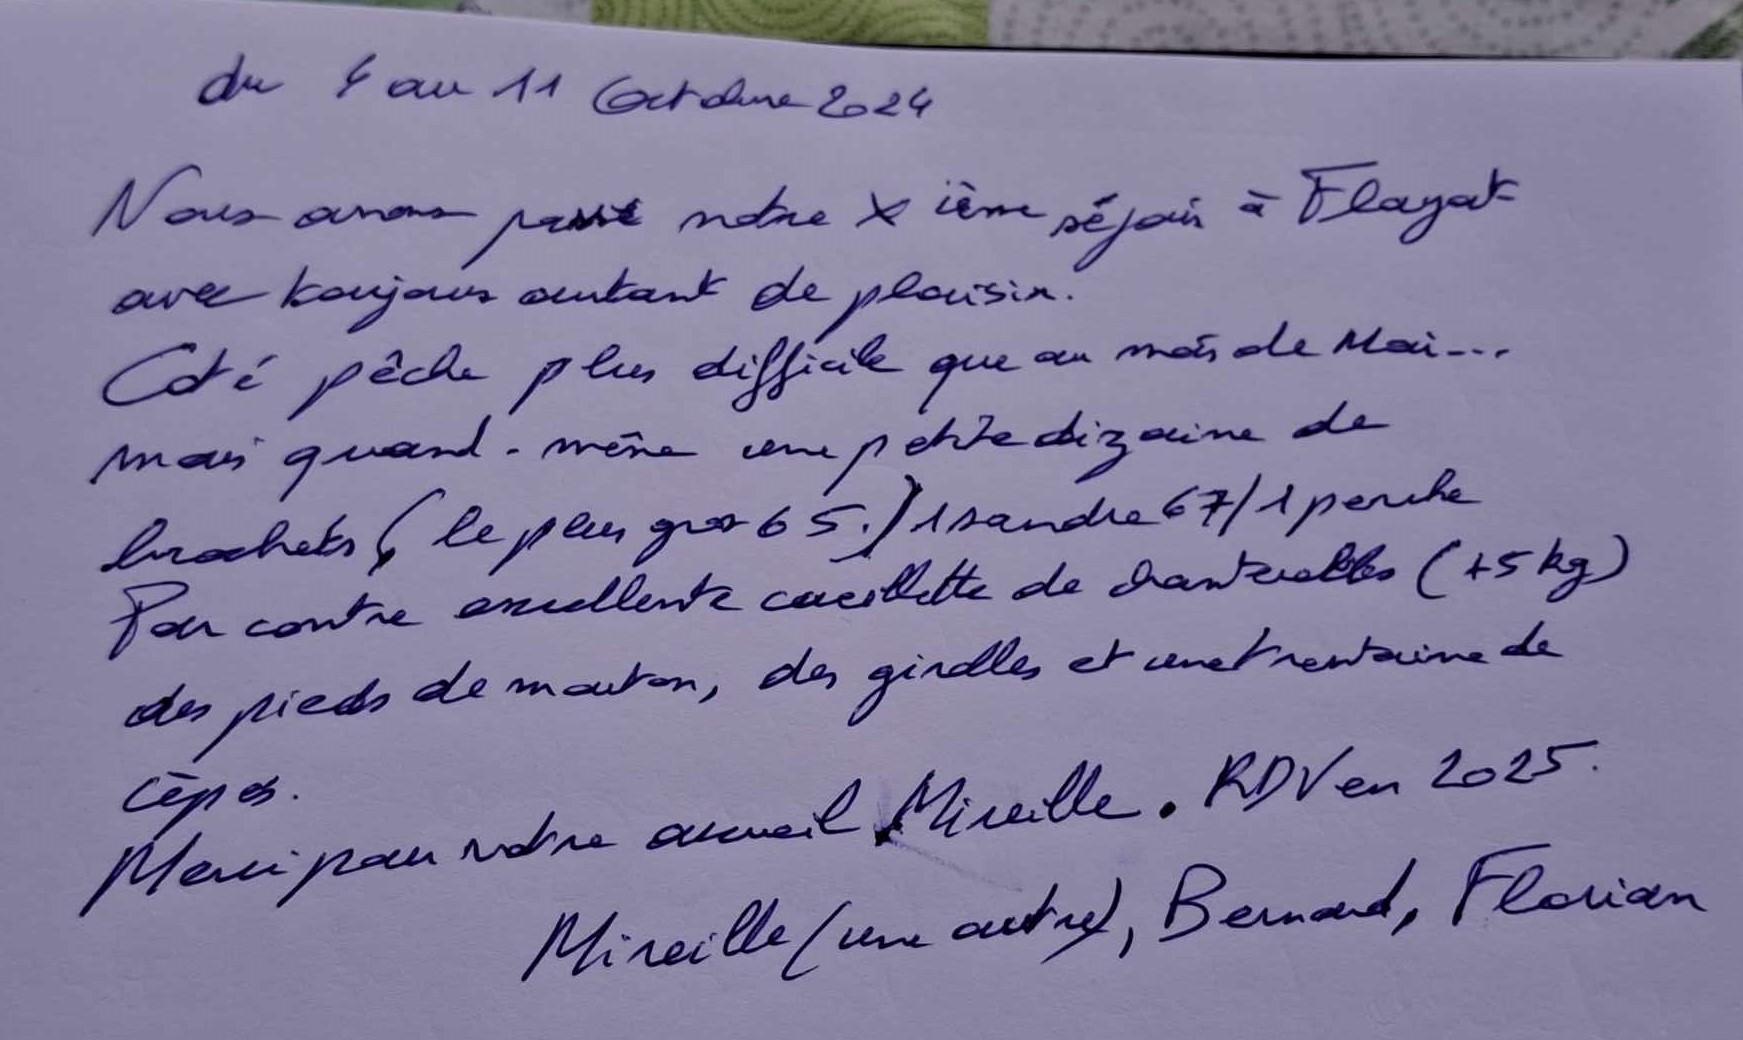 du 4 au 11 Octobre 2024
Nous avons passé notre X ième séjour à Flayat
avec toujours autant de plaisir.
Coté pêche plus difficile que au mois de Mai...
mais quand-même une petite dizaine de
brochets (le plus gros 65.) 1 sandre 67/1 perche
Par contre excellente cueillette de chanterelles (+5kg)
des pieds de mouton, des girolles et une trentaine de
cèpes.
Merci pour votre accueil Mireille. RDV en 2025.
Mireille (une autre), Bernard, Florian